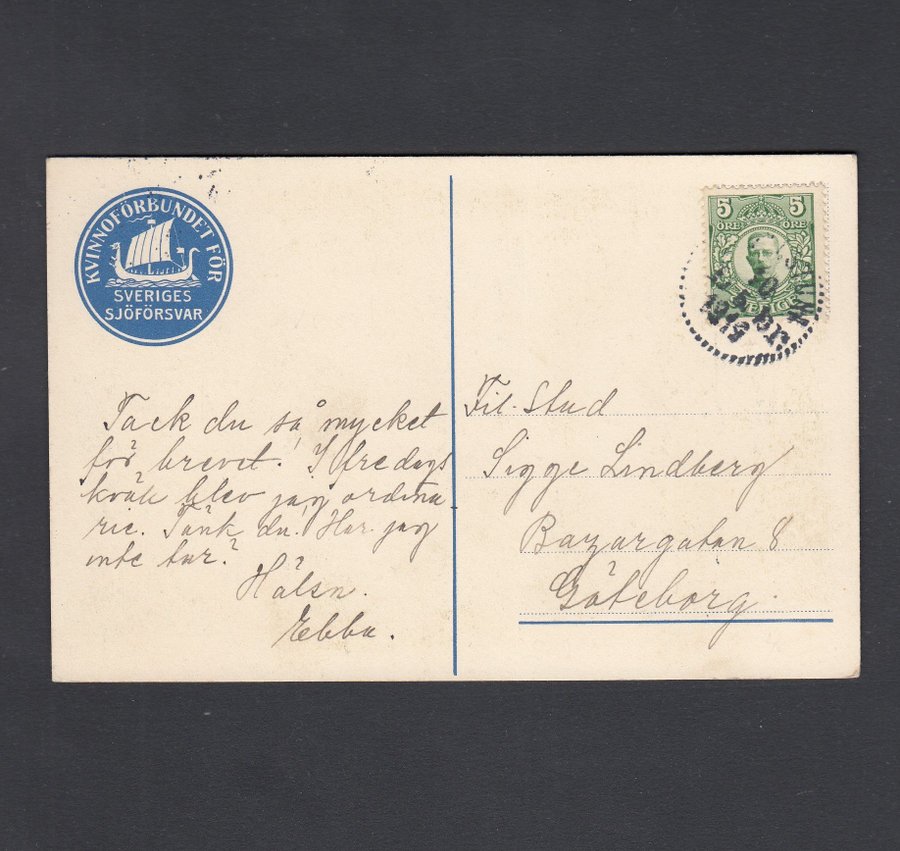 KVINNOFÖRBUNDET FÖR
SVERIGES
SJÖFÖRSVAR
5 5
ÖRE ÖRE
SVERIGE
Tack du så mycket
för brevet! I fredags
kväll blev jag ordina
rie. Tänk du! Har jag
inte tur?
Hälsn.
Ebba.
Fil. Stud
Sigge Lindberg
Bazargatan 8
Göteborg.